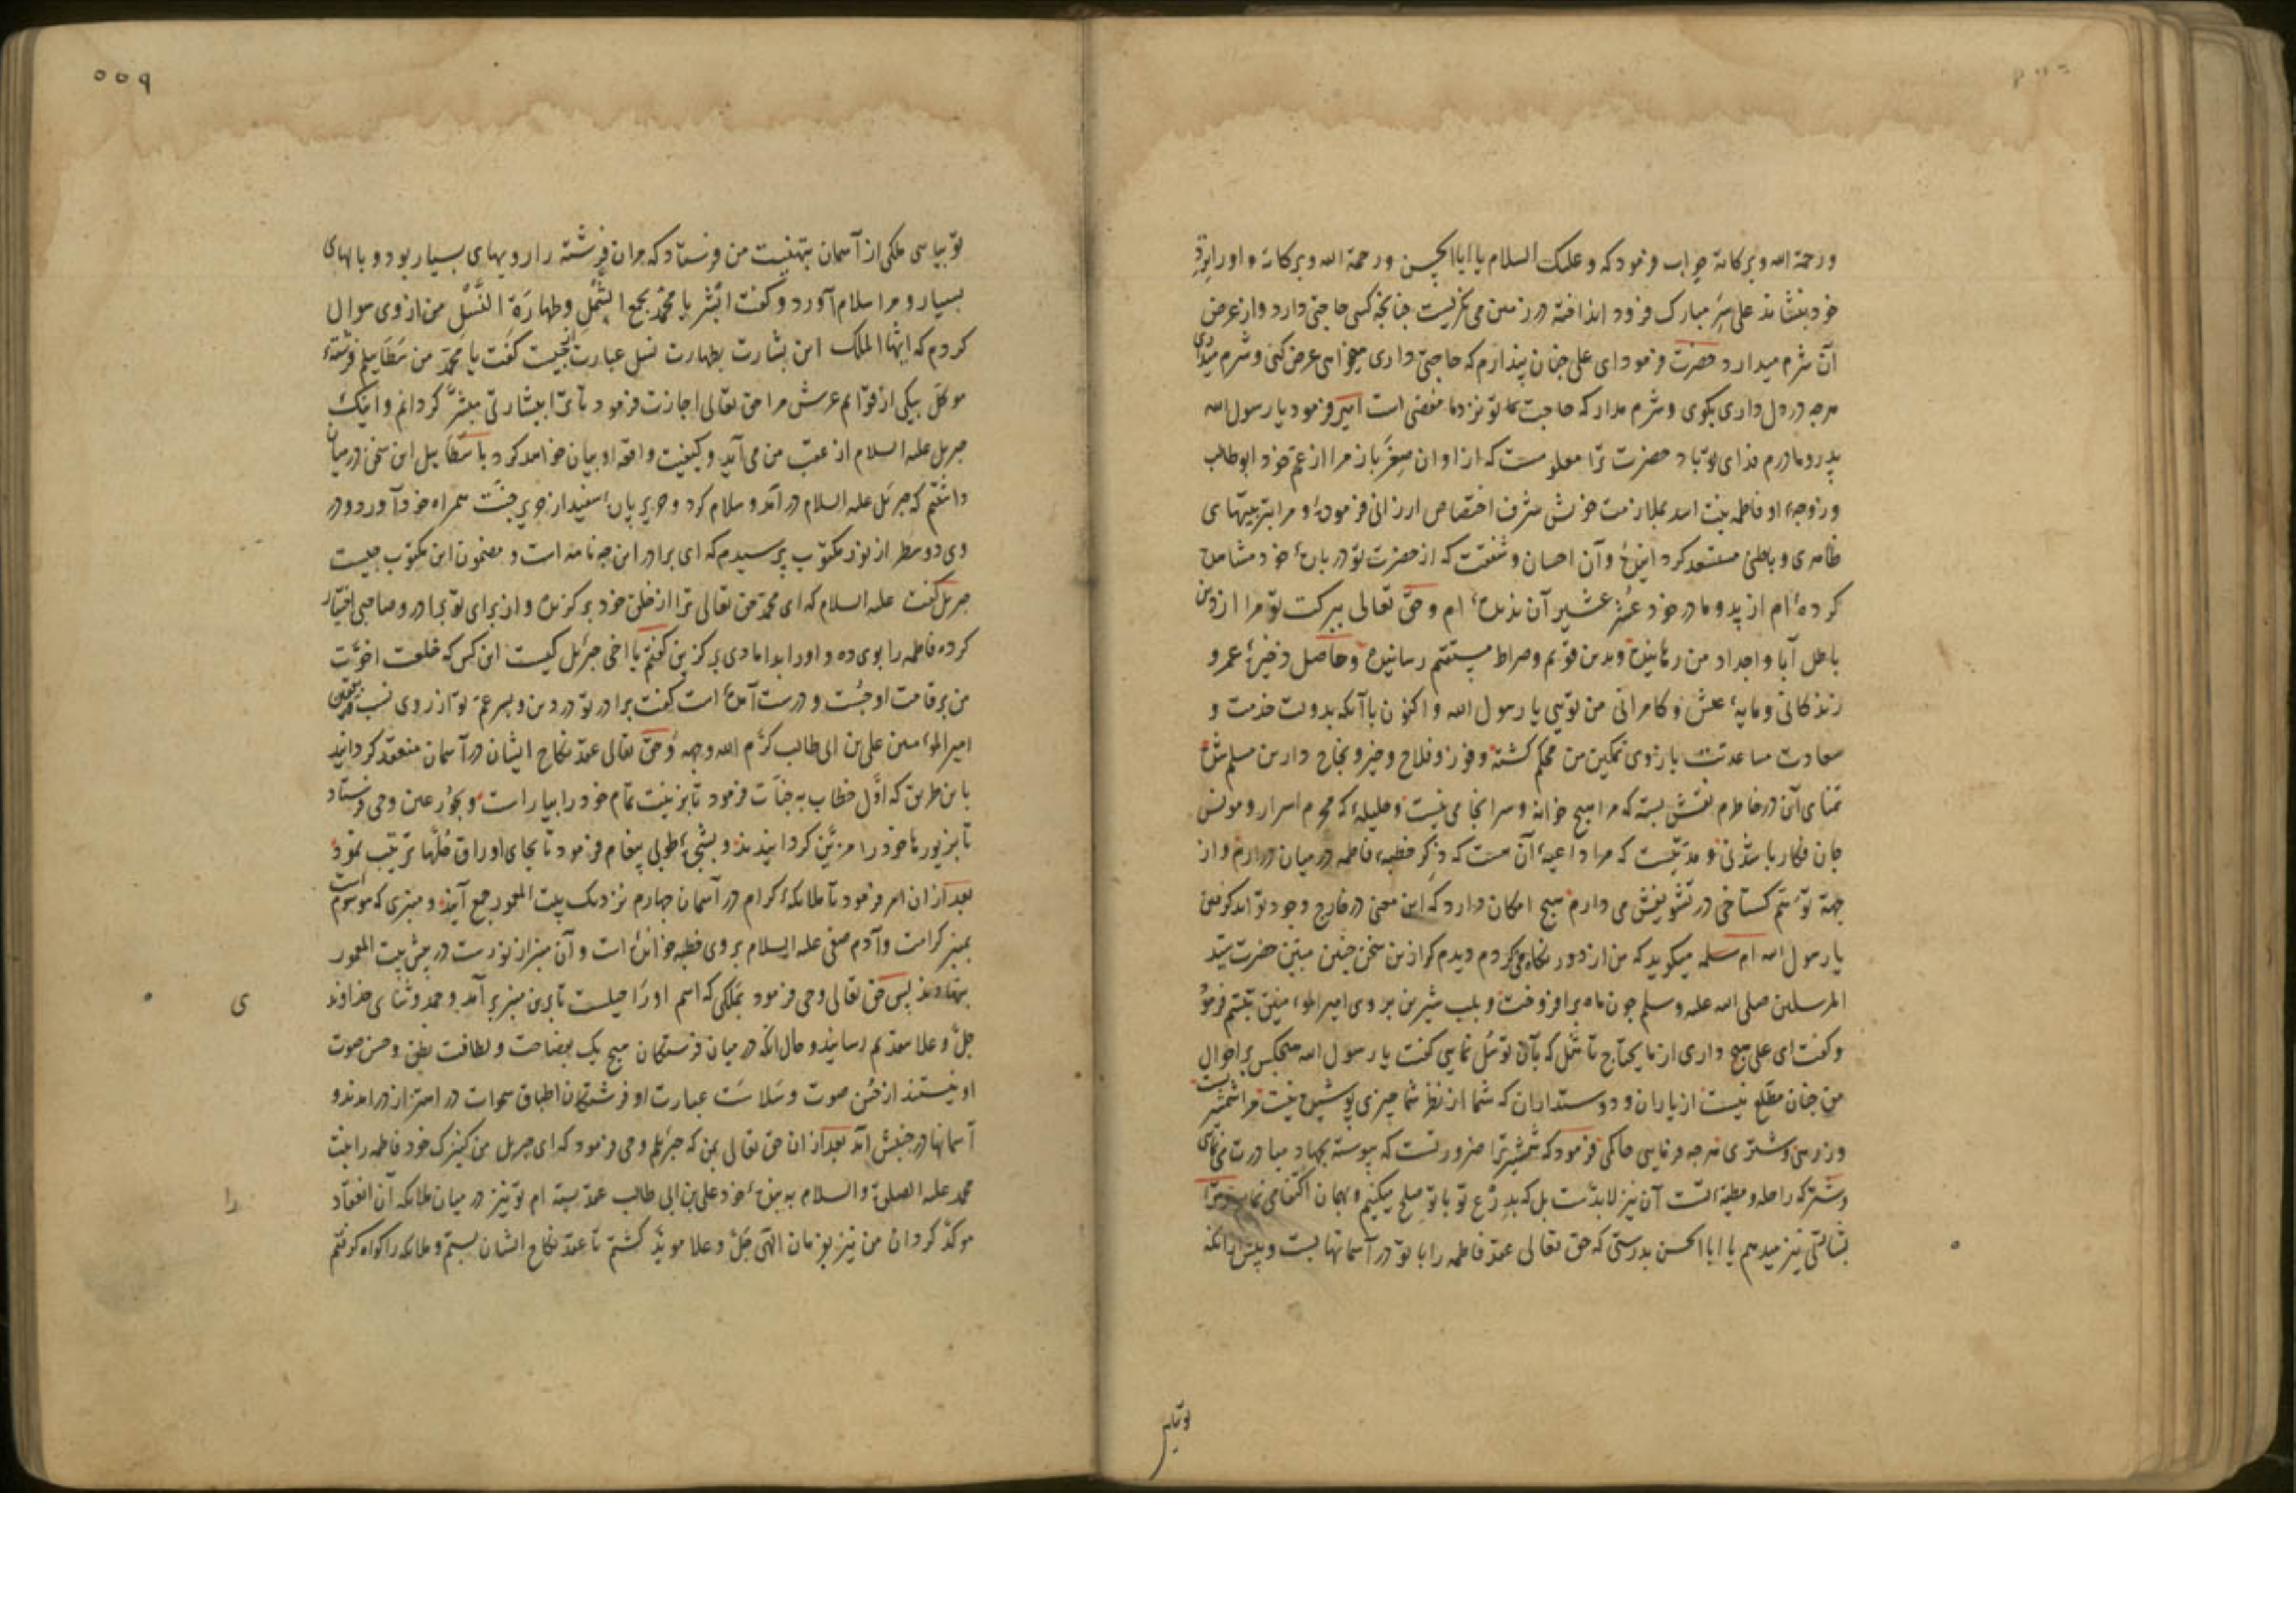 ورحمة الله وبرکاته جواب فرمود که وعلیک السلام یا ابا الحسن ورحمة الله وبرکاته و اورا نزد
خود بنشاند علی سر مبارک فرود انداخته در زمین می نگریست چنانچه کسی حاجتی دارد واز عرض
آن شرم میدارد حضرت فرمود ای علی چنان پندارم که حاجتی داری میخواهی عرض کنی وشرم میداری
هرچه در دل داری بگوی وشرم مدار که حاجت تو نزد ما مقضی است امیر فرمود یا رسول الله
پدر ومادرم فدای تو باد حضرت ترا معلومست که از اوان صغر باز مرا از عم خود ابوطالب
وزوجهٔ او فاطمه بنت اسد بملازمت خویش شرف اختصاص ارزانی فرمودهٔ و مرا بتربیتهای
ظاهری وباطنی مستسعد کرد اینده وآن احسان وشفقت که از حضرت تو در بارهٔ خود مشاهده
کرده ام از پدر ومادر خود عشر عشیر آن ندیده ام وحق تعالی ببرکت تو مرا از دین
باطل آبا واجداد من رهانیده وبدین قویم وصراط مستقیم رسانیده وحاصل ذخیرهٔ عمر و
زندگانی ومایهٔ عیش وکامرانی من تویی یا رسول الله واکنون باآنکه بدولت خدمت و
سعادت مساعدتت بازوی تمکین من محکم گشته وفوز وفلاح وخیر ونجاح دارین مسلم شده
تمنای آن در خاطرم نقش بسته که مرا هیچ خانه وسرانجامی نیست وحلیلهٔ که محرم اسرار ومونس
جان فکار باشد نی ومدتیست که مرا داعیهٔ آن هست که ذکر خطبهٔ فاطمه در میان آرم واز
جهة توهم گستاخی در تشویش می دارم هیچ امکان دارد که این معنی در خارج وجود تواند گرفتن
یا رسول الله ام سلمه میگوید که من از دور نگاه می کردم دیدم که از این سخن جبین مبین حضرت سید
المرسلین صلی الله علیه وسلم چون ماه برافروخت وبلب شیرین بر روی امیر المؤمنین تبسم فرمود
وگفت ای علی هیچ داری از مایحتاج تأهل که بآن توسل نمایی گفت یا رسول الله هیچکس بر احوال
من چنان مطلع نیست از یاران ودوستداران که شما از نظر شما چیزی پوشیده نیست مرا شمشیریست
وزرهی وشتری هرچه فرمایی حاکمی فرمود که شمشیر ترا ضروریست که پیوسته بجهاد مبادرت می نمایی
وشتر که راحله ومطیهٔ تست آن نیز لابدست بل که بدرع تو با تو صلح میکنیم وبهمان اکتفا می نماییم وترا
بشارتی نیز میدهم یا ابا الحسن بدرستی که حق تعالی عقد فاطمه را با تو در آسمانها بست وپیش از آنکه
تو بیایی
تو بیایی ملکی از آسمان بتهنیت من فرستاد که مر آن فرشته را رویهای بسیار بود وبالهای
بسیار ومرا سلام آورد وگفت ابشر یا محمد بجمع الشمل وطهارة النسل من از وی سوال
کردم که ایها الملک این بشارت بطهارت نسل عبارت از چیست گفت یا محمد من سطائیلم فرشتهٔ
موکل بیکی از قوایم عرش مرا حق تعالی اجازت فرمود تا ترا ببشارتی مبشر گردانم واینک
جبریل علیه السلام از عقب من می آید وکیفیت واقعه او بیان خواهد کرد با سطائیل این سخن در میان
داشتم که جبرئیل علیه السلام در آمد وسلام کرد وحریر پارهٔ سفید از حریر جنت همراه خود آورد ودر
وی دو سطر از نور مکتوب پرسیدم که ای برادر این چه نامه است ومضمون این مکتوب چیست
جبریل گفت علیه السلام که ای محمد حق تعالی ترا از خلق خود برگزیده واز برای تو برادر وصاحبی اختیار
کرده فاطمه را بوی ده واورا بدامادی برگزین گفتم یا اخی جبرئیل کیست این کس که خلعت اخوت
من بر قامت او چست ودرست آمده است گفت برادر تو در دین وپسر عم تو از روی نسب یعنی
امیر المؤمنین علی بن ابی طالب کرم الله وجهه وحق تعالی عقد نکاح ایشان در آسمان منعقد گردانید
باین طریق که اول خطاب به جنات فرمود تا بزینت تمام خود را بیاراست وبحور عین وحی فرستاد
تا بزیورها خود را مزین گردانیدند وبشجرهٔ طوبی پیغام فرمود تا بجای اوراق حلها ترتیب نمود
بعد از ان امر فرمود تا ملائکهٔ کرام در آسمان چهارم نزدیک بیت المعمور جمع آیند ومنبری که موسوم است
بمنبر کرامت وآدم صفی علیه السلام بروی خطبه خوانده است وآن منبر از نورست در پیش بیت المعمور
بنهادند پس حق تعالی وحی فرمود بملکی که اسم او راحیلست تا برین منبر بر آمد وحمد وثنای خداوند
جل وعلا بتقدیم رسانید وحال آنکه در میان فرشتگان هیچ یک بفصاحت ولطافت نطق وحسن صوت
او نیستند از حسن صوت وسلاست عبارت او فرشتگان اطباق سموات در اهتزاز در آمدند و
آسمانها در جنبش آمد بعد از ان حق تعالی بمن که جبرئیلم وحی فرمود که ای جبریل من کنیزک خود فاطمه را بنت
محمد علیه الصلوة والسلام به بندهٔ خود علی بن ابی طالب عقد بسته ام تو نیز در میان ملائکه آن انعقاد
موکد گردان من نیز بفرمان الهی جل وعلا مؤید گشتم تا عقد نکاح ایشان بستم وملائکه را گواه گرفتم
ی
را
۵۵۹